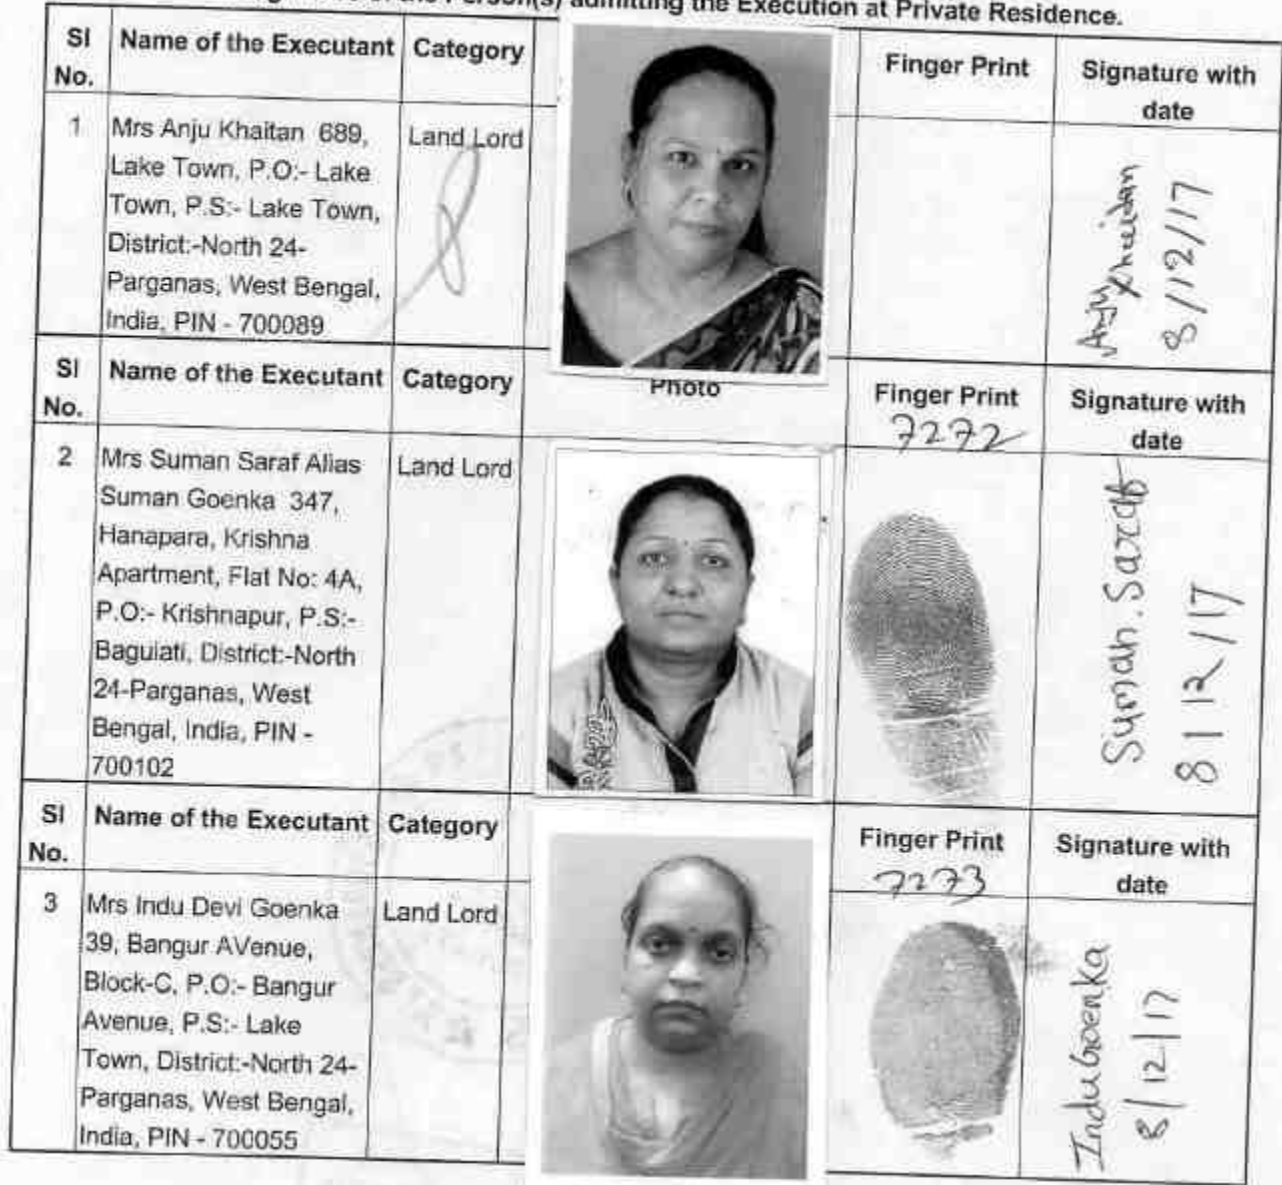 of the Person(s) admitting the Execution at Private Residence.
Sl No.
Name of the Executant
Category
Finger Print
Signature with date
1
Mrs Anju Khaitan 689,
Lake Town, P.O:- Lake
Town, P.S:- Lake Town,
District:-North 24-
Parganas, West Bengal,
India, PIN - 700089
Land Lord
Anju Khaitan
8/12/17
Sl No.
Name of the Executant
Category
Photo
Finger Print
7272
Signature with date
2
Mrs Suman Saraf Alias
Suman Goenka 347,
Hanapara, Krishna
Apartment, Flat No: 4A,
P.O:- Krishnapur, P.S:-
Baguiati, District:-North
24-Parganas, West
Bengal, India, PIN -
700102
Land Lord
Suman. Saraf
8/12/17
Sl No.
Name of the Executant
Category
Finger Print
7273
Signature with date
3
Mrs Indu Devi Goenka
39, Bangur AVenue,
Block-C, P.O:- Bangur
Avenue, P.S:- Lake
Town, District:-North 24-
Parganas, West Bengal,
India, PIN - 700055
Land Lord
Indu Goenka
8/12/17